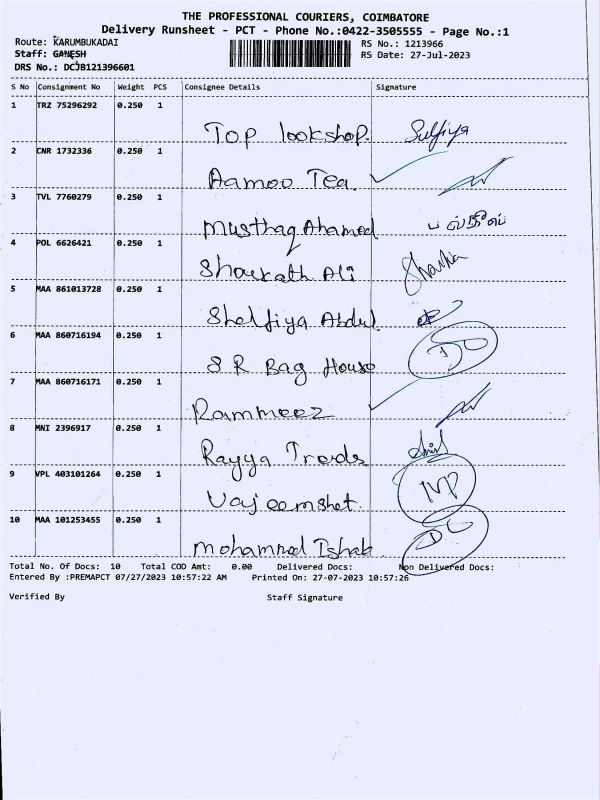 THE PROFESSIONAL COURIERS, COIMBATORE
Delivery Runsheet - PCT - Phone No.:0422-3505555 - Page No.:1
Route: KARUMBUKADAI RS No.: 1213966
Staff: GANESH RS Date: 27-Jul-2023
DRS No.: DCJB121396601
S No Consignment No Weight PCS Consignee Details Signature
1 TRZ 75296292 0.250 1
Top lookshop. Sulfiya
2 CNR 1732336 0.250 1
Aamoo Tea.
3 TVL 7760279 0.250 1
Musthaq Ahamed
4 POL 6626421 0.250 1
Shoukath Ali
5 MAA 861013728 0.250 1
Shelfiya Abdul
6 MAA 860716194 0.250 1
S R Bag House
7 MAA 860716171 0.250 1
Rammeez
8 MNI 2396917 0.250 1
Rayya Trads
9 VPL 403101264 0.250 1
Vajeemshet.
10 MAA 101253455 0.250 1
Mohammed Ishak
Total No. Of Docs: 10 Total COD Amt: 0.00 Delivered Docs: Non Delivered Docs:
Entered By :PREMAPCT 07/27/2023 10:57:22 AM Printed On: 27-07-2023 10:57:26
Verified By Staff Signature